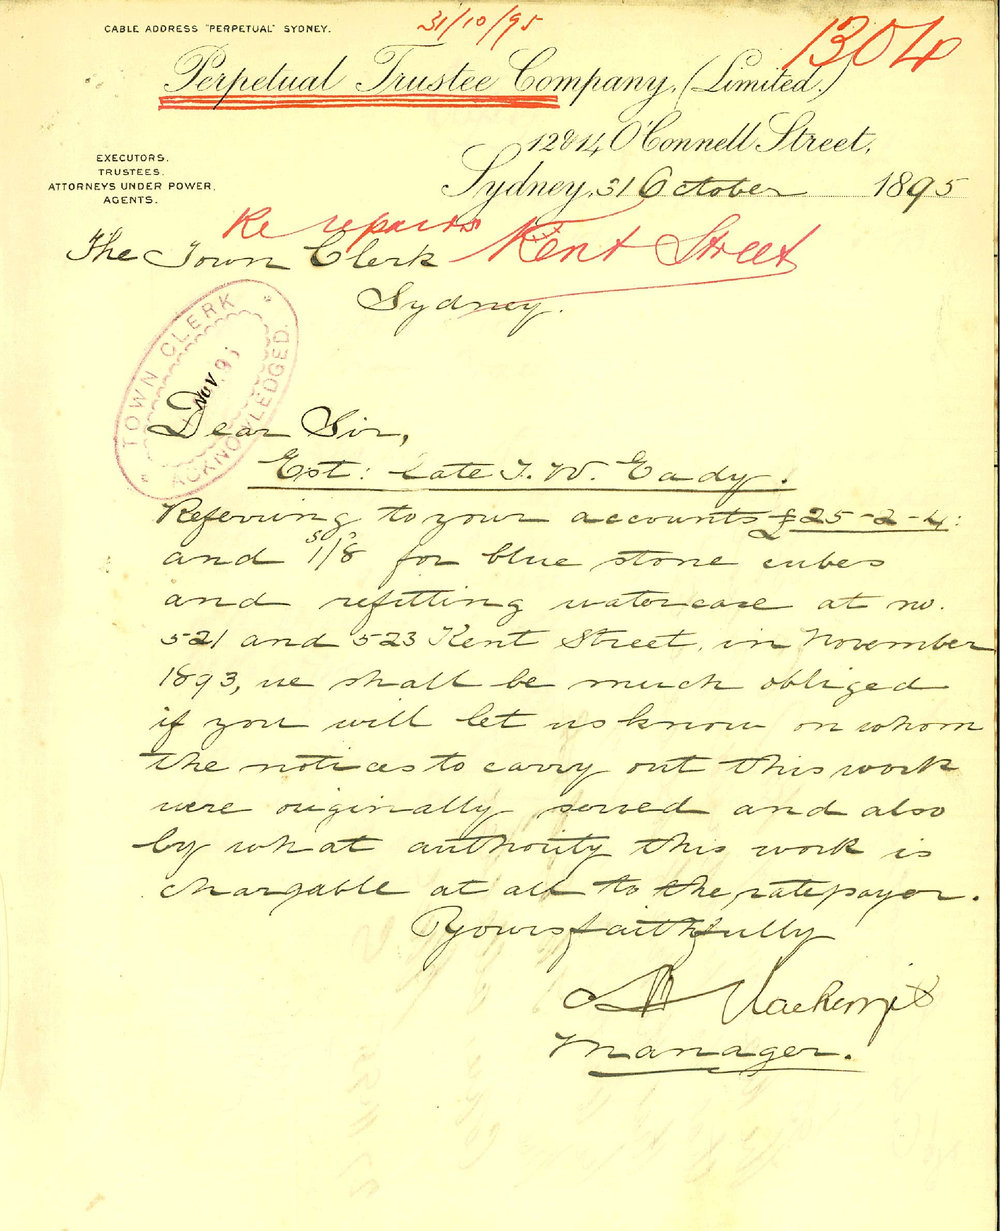 CABLE ADDRESS "PERPETUAL" SYDNEY.
31/10/95
1304
Perpetual Trustee Company, (Limited.)
12 & 14 O'Connell Street,
EXECUTORS.
TRUSTEES.
ATTORNEYS UNDER POWER.
AGENTS.
Sydney, 31 October 1895
Re repairs Kent Street
The Town Clerk
Sydney.
TOWN CLERK
NOV. 95
ACKNOWLEDGED.
Dear Sir,
Est: late J. W. Eady.
Referring to your accounts £25-2-4:
and 1/8 for blue stone cubes
and refitting watercase at no.
521 and 523 Kent Street, in November
1893, we shall be much obliged
if you will let us know on whom
the notices to carry out this work
were originally served and also
by what authority this work is
chargable at all to the ratepayer.
Yours faithfully
Mackenzie
Manager.